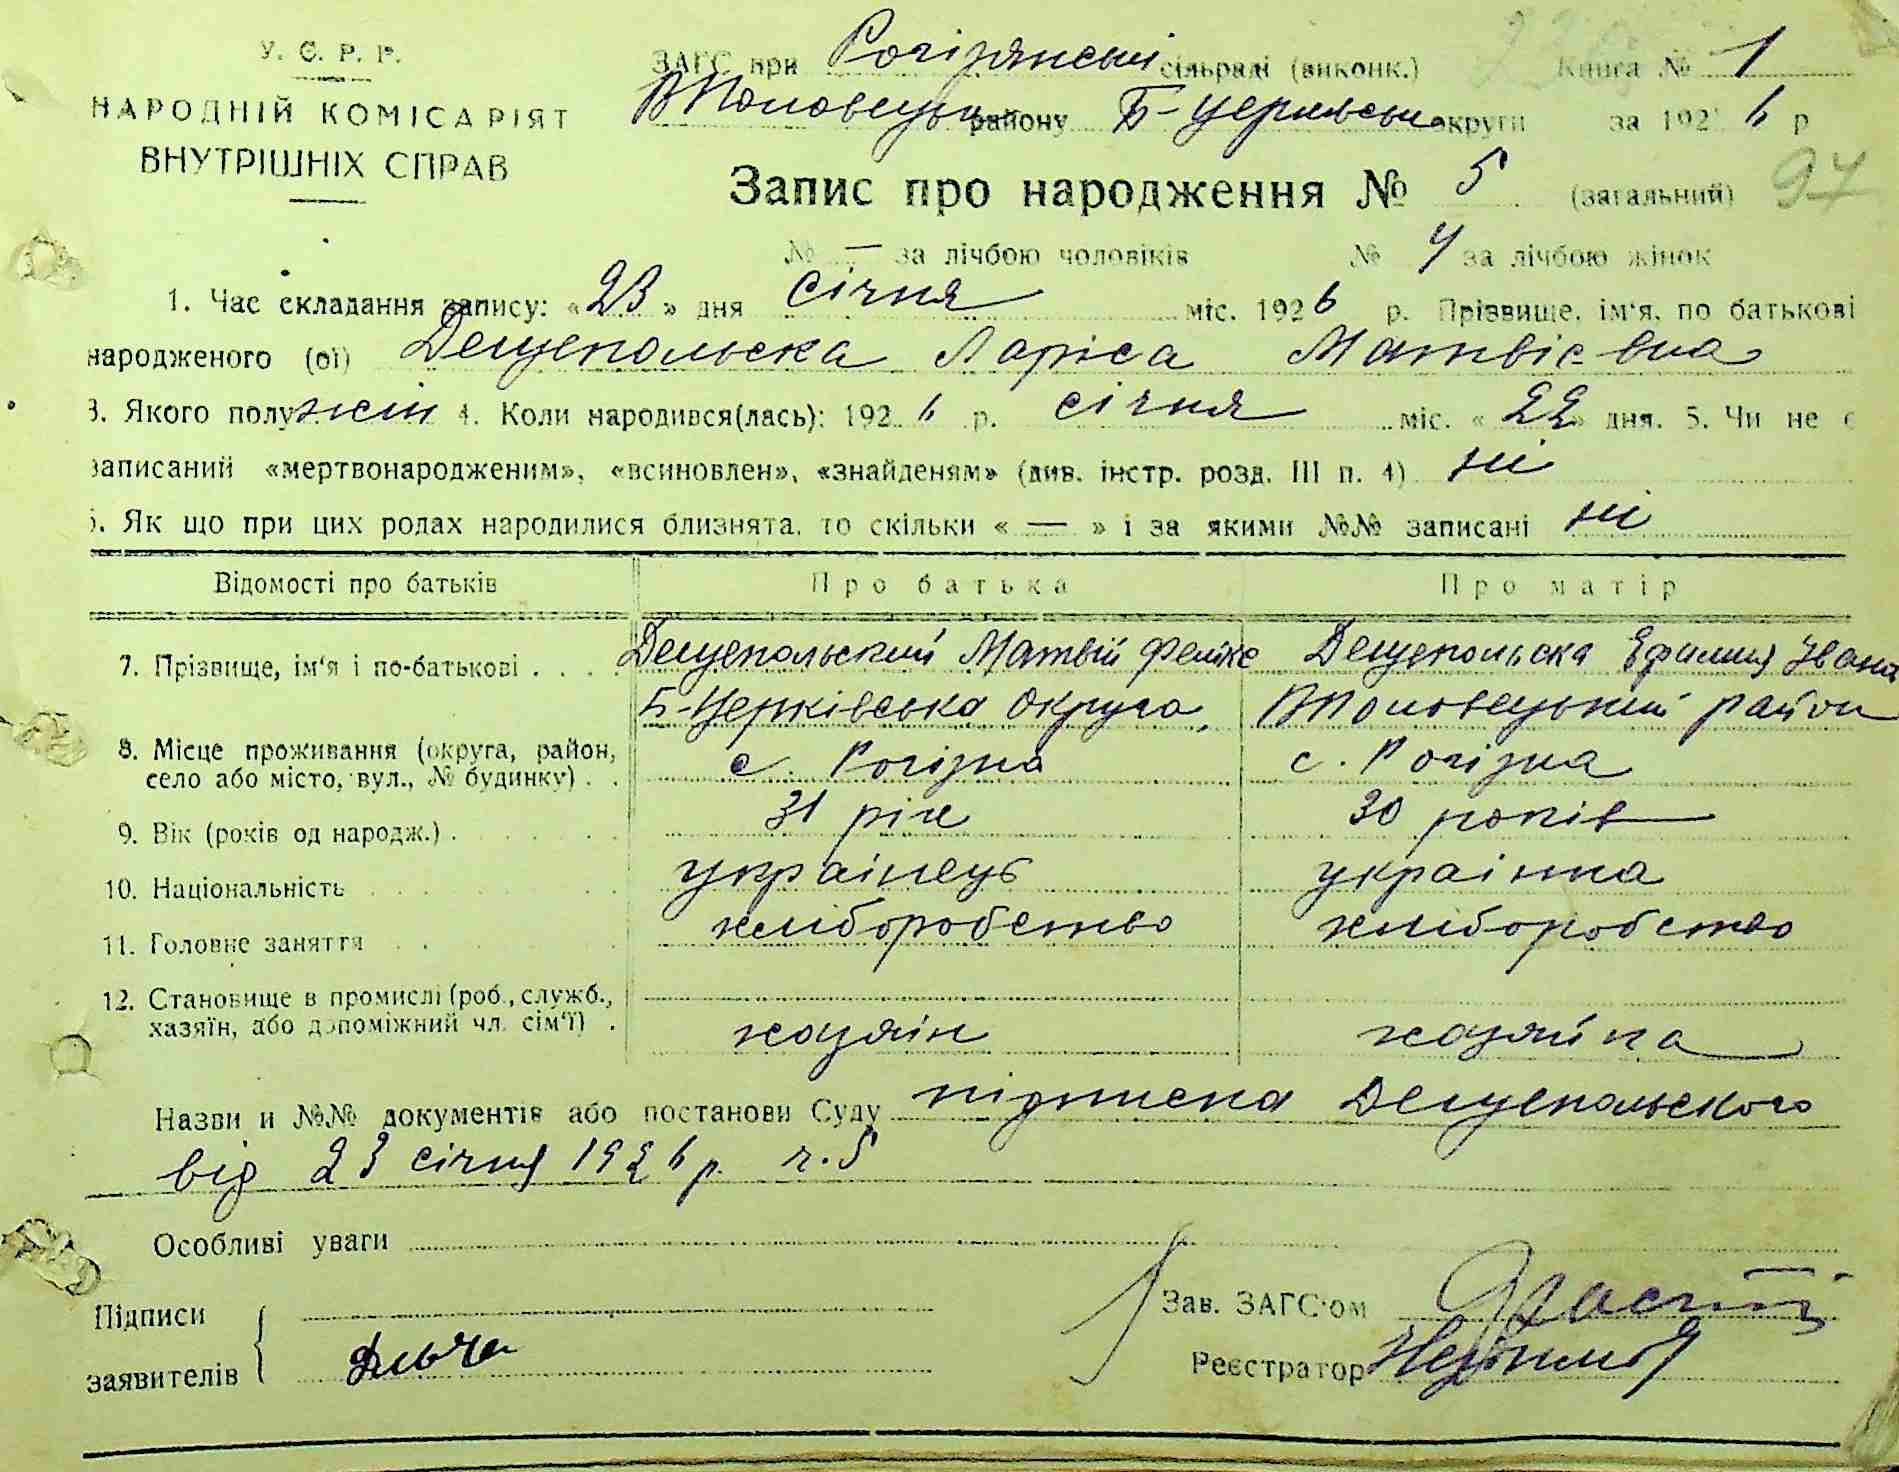 У. С. Р. Р.
НАРОДНІЙ КОМІСАРІЯТ
ВНУТРІШНІХ СПРАВ
ЗАГС при Рогізянскій сільраді (виконк.) Книга № 1
району Б-Церківської округи за 1926 р
Запис про народження № 5 (загальний) 97
№ — за лічбою чоловіків № 4 за лічбою жінок
1. Час складання запису: «23» дня січня міс. 1926 р. Прізвище, ім'я, по батькові
народженого (ої) Дещепольска Ларіса Матвієвна
3. Якого полу жін 4. Коли народився(лась): 1926 р. січня міс. «22» дня. 5. Чи не є
записаний «мертвонародженим», «всиновлен», «знайденям» (див. інстр. розд. III п. 4) ні
6. Як що при цих родах народилися близнята, то скільки « — » і за якими №№ записані ні
Відомості про батьків Про батька Про матір
7. Прізвище, ім'я і по-батькові . . . . Дещепольский Матвій Фелікс Дещепольска Ефимия Івана
Б-Церківська Округа, район
8. Місце проживання (округа, район,
село або місто, вул., № будинку) . . с. Рогізна с. Рогізна
9. Вік (років од народж.) . 31 рік 30 років
10. Національність українець українка
11. Головне заняття хліборобство хліборобство
12. Становище в промислі (роб., служб.,
хазяїн, або допоміжний чл. сім'ї) . хозяін хозяйка
Назви и №№ документів або постанови Суду підписка Дещепольского
від 23 січня 1926 р. ч. 5
Особливі уваги
Підписи
заявителів
Зав. ЗАГС'ом
Реєстратор